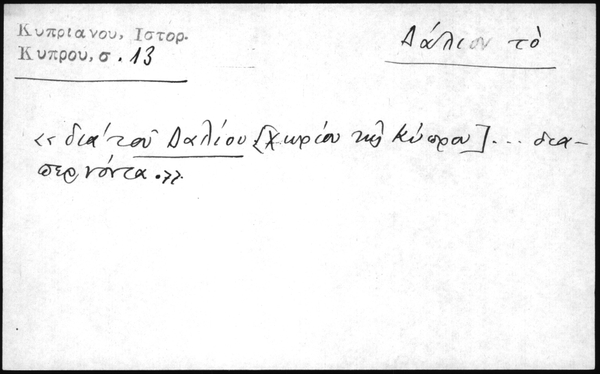 Κυπριανου, Ιστορ.
Κυπρου, σ. 13
Δάλιον τὸ
«διὰ τοῦ Δαλίου [χωρίον τῆς Κύπρου] ... δια-
περνόντα.»